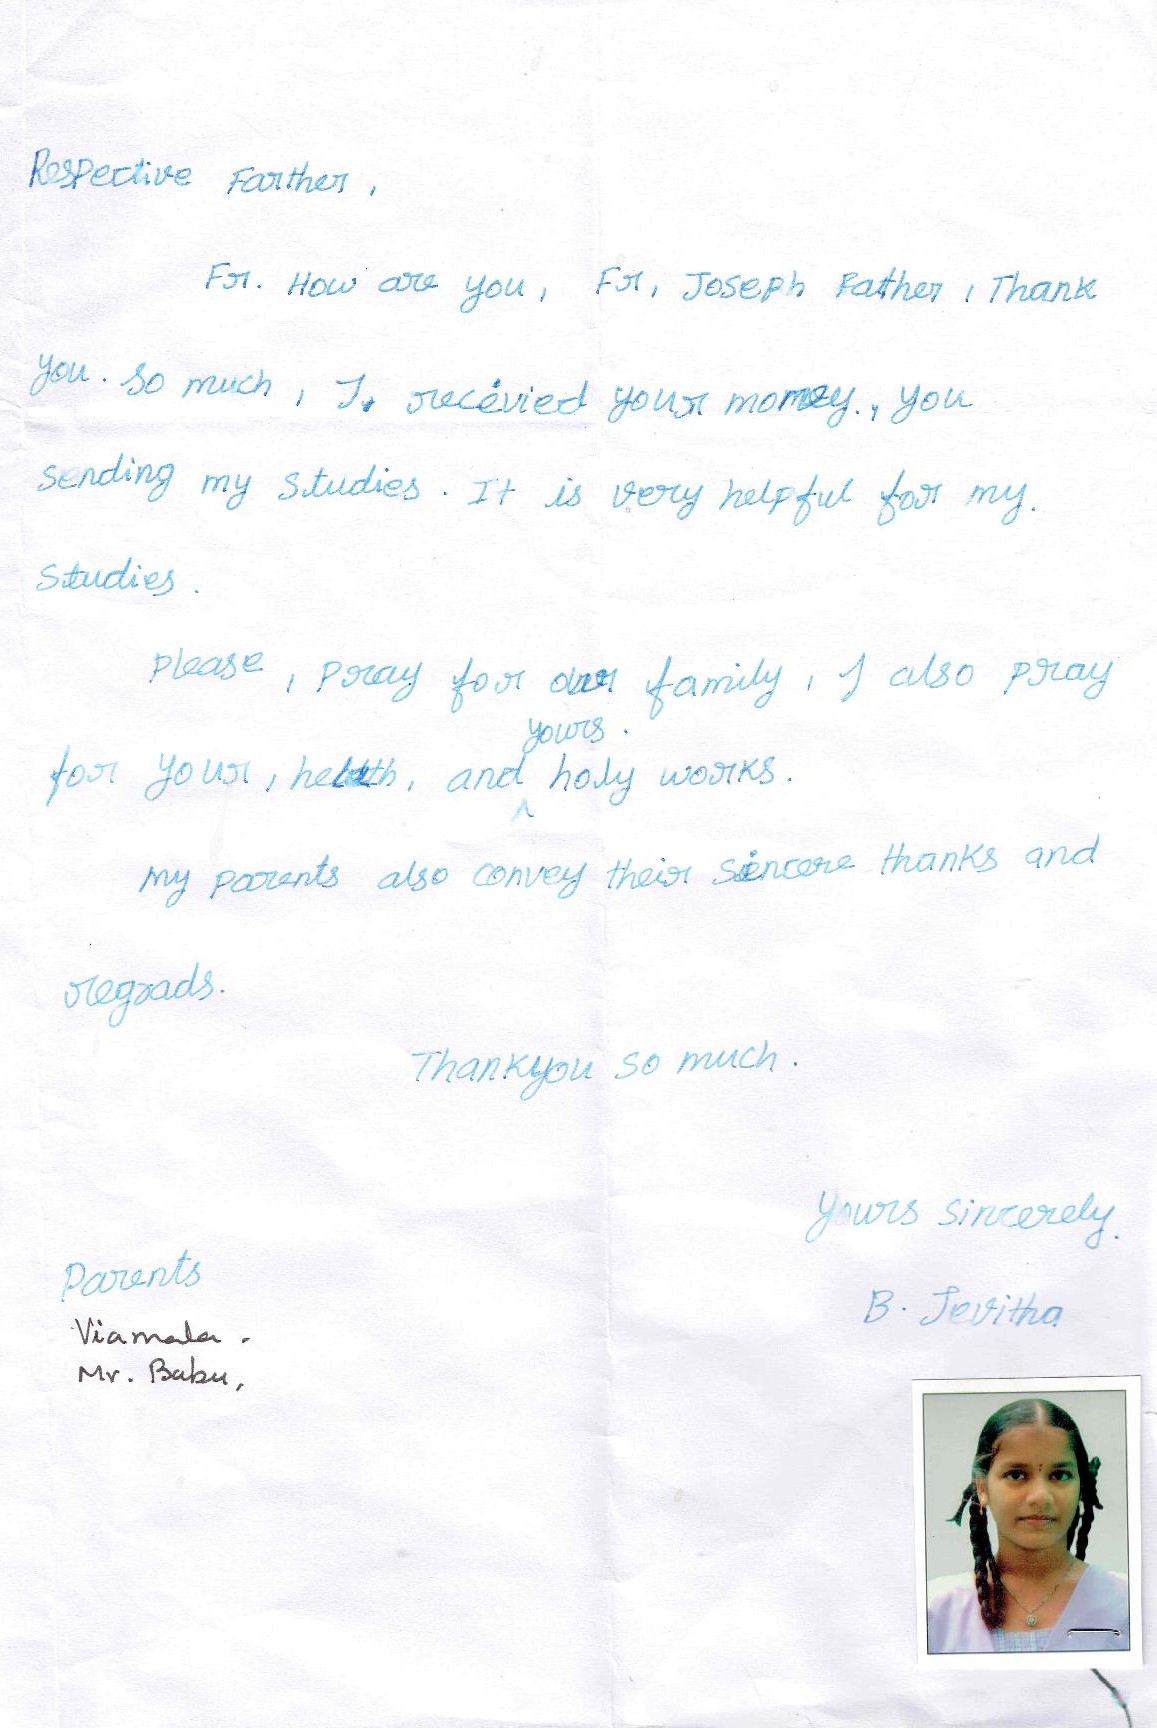 Respective Farther,
Fr. How are you, Fr, Joseph Father, Thank
you. so much, I. recévied your money., you
sending my studies. It is very helpful for my.
studies.
please, pray for our family, I also pray
yours.
for your, helath, and ^ holy works.
my parents also convey their sincere thanks and
regrads.
Thankyou so much.
Yours sincerely.
Parents
B. Jevitha
Viamala.
Mr. Babu,